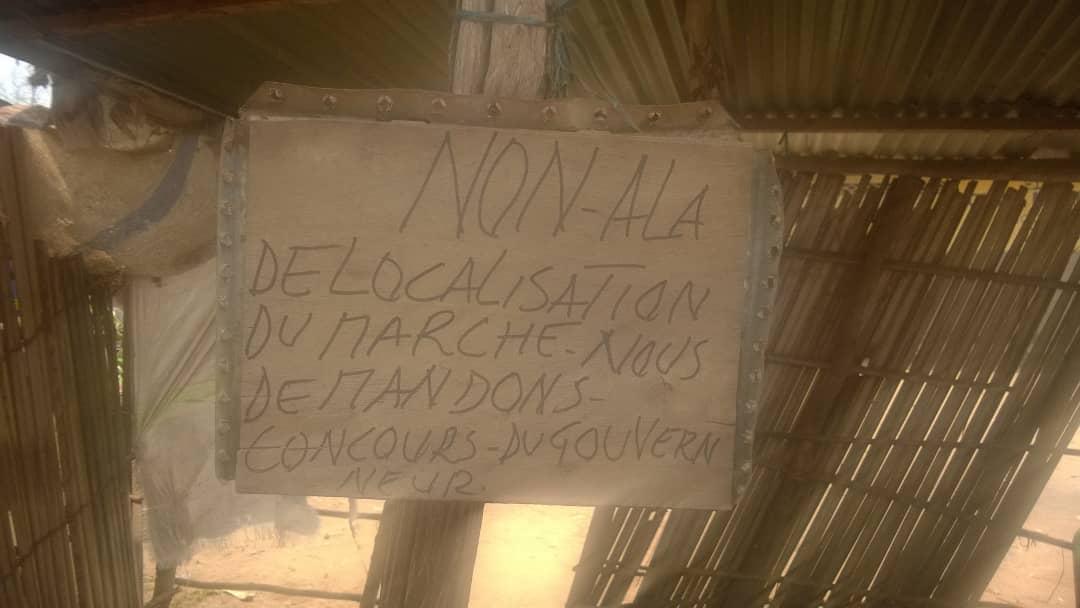 NON-ALA
DELOCALISATION
DU MARCHE-NOUS
DEMANDONS-
CONCOURS-DU GOUVERN
NEUR.